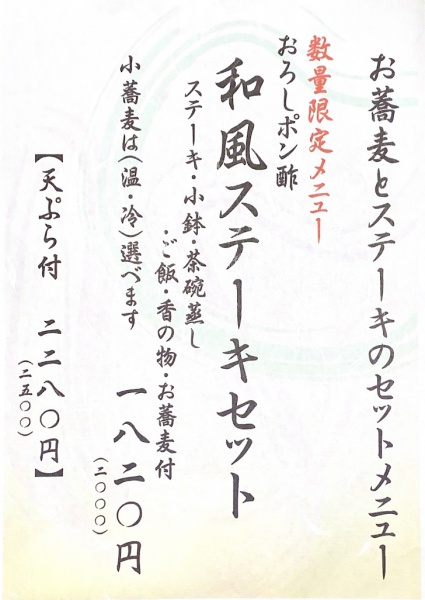 お蕎麦とステーキのセットメニュー
数量限定メニュー
おろしポン酢
和風ステーキセット
ステーキ・小鉢・茶碗蒸し
・ご飯・香の物・お蕎麦付
一八二〇円
(二〇〇〇)
小蕎麦は(温・冷)選べます
【天ぷら付 二二八〇円】
(二五〇〇)